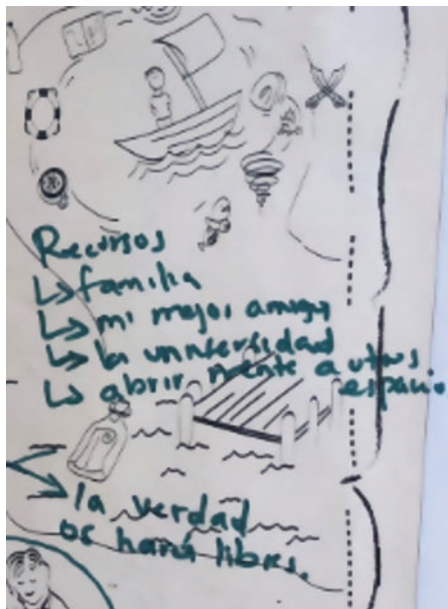 Recursos
↳ familia
↳ mi mejor amiga
↳ la universidad
↳ abrir mente a otros
espacio
la verdad
os hará libres.